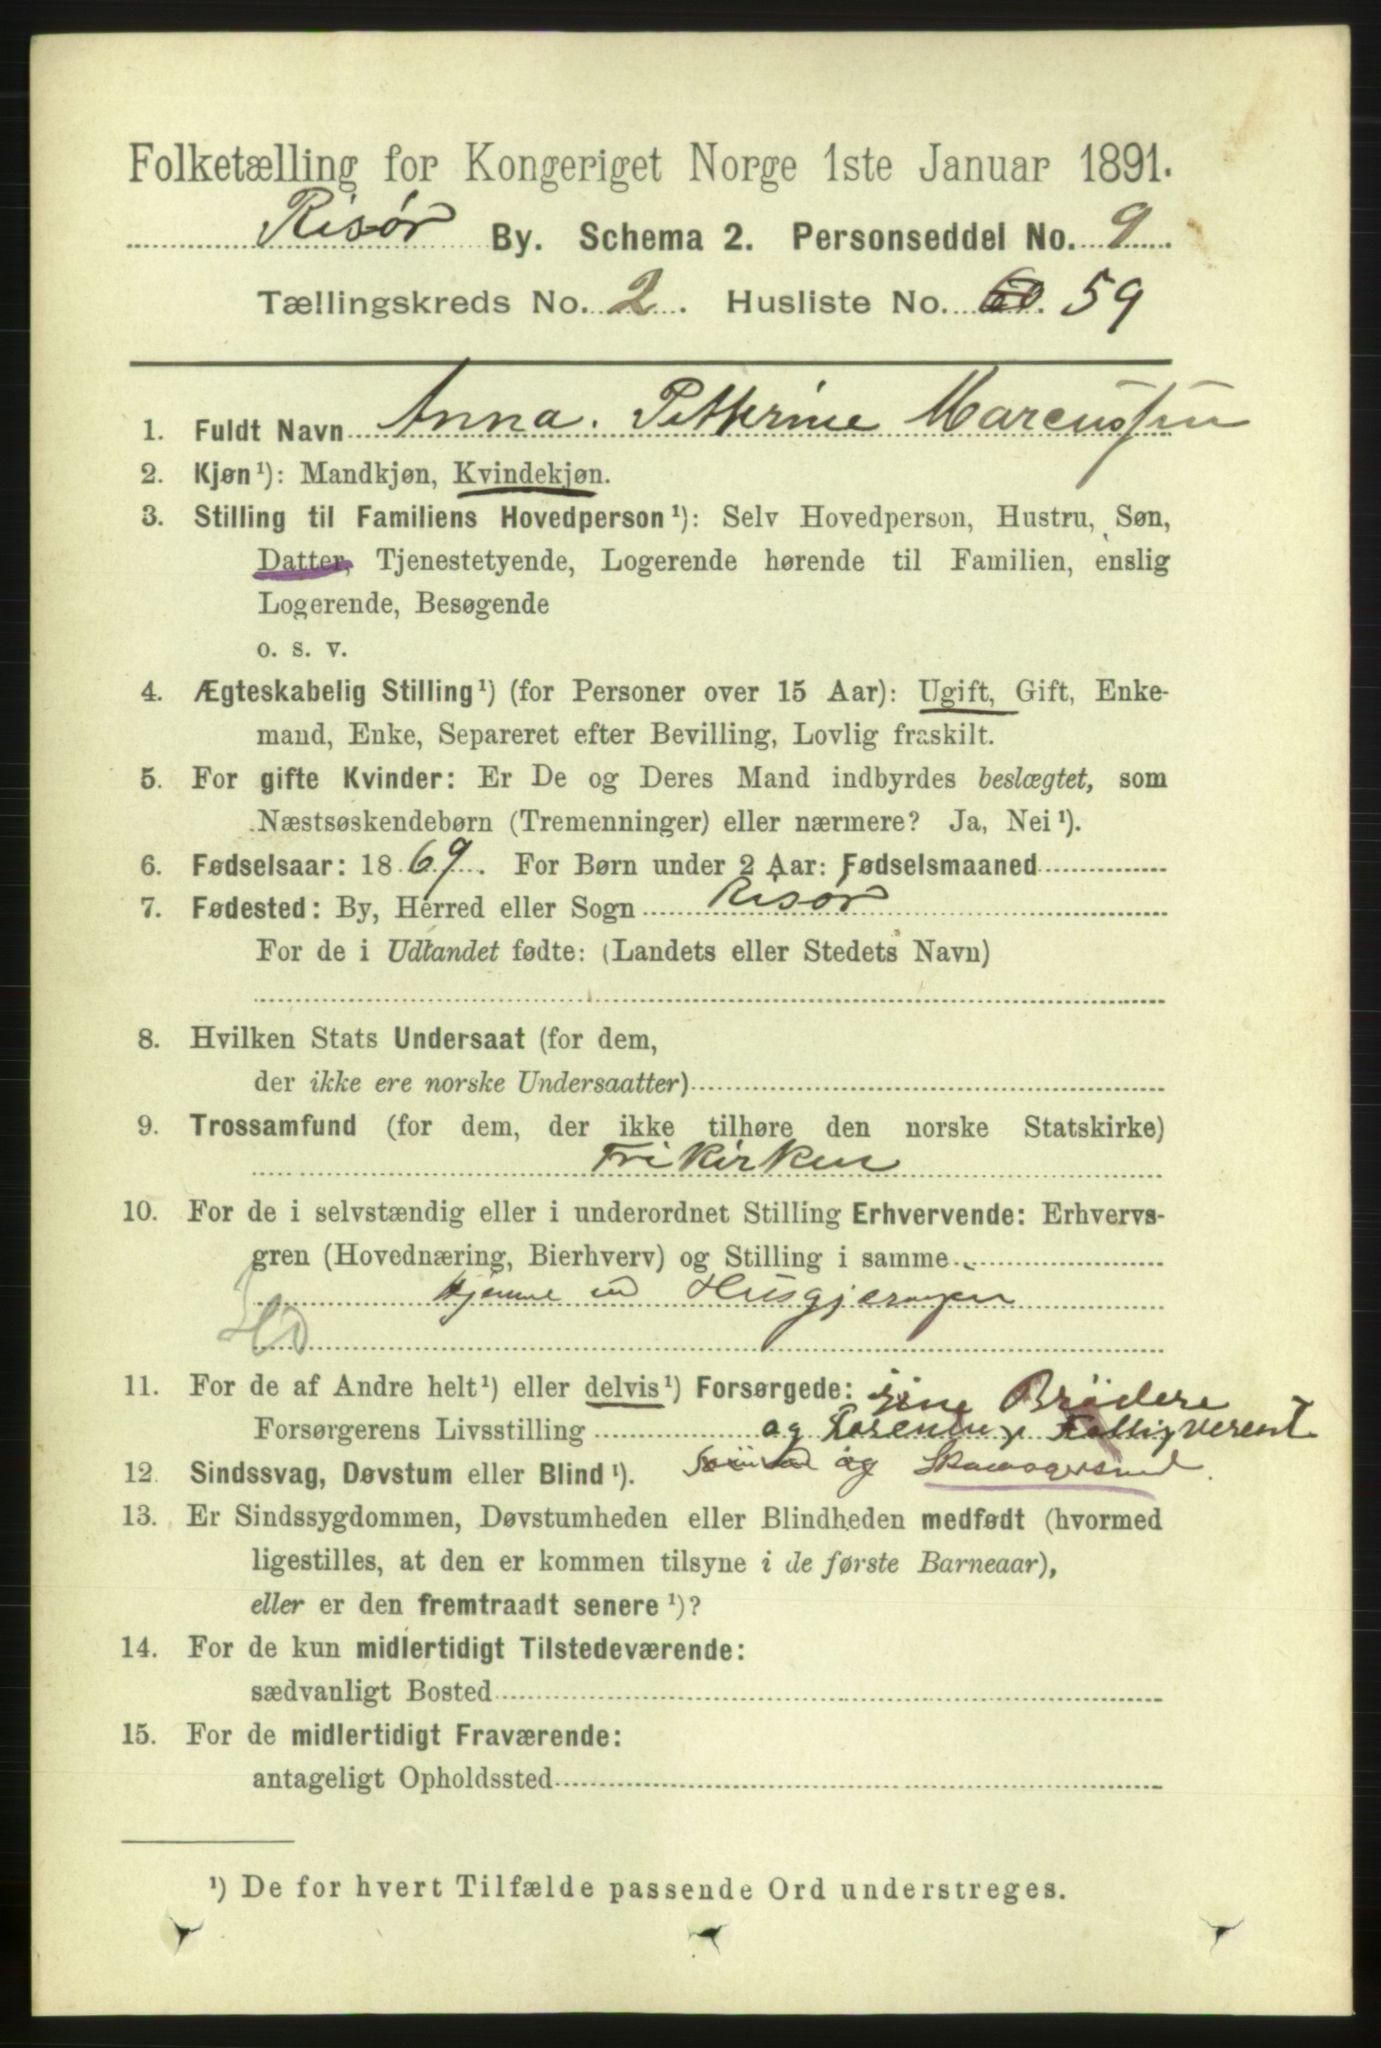 Folketælling for Kongeriget Norge 1ste Januar 1891.
Risør By. Schema 2. Personseddel No. 9
Tællingskreds No. 2. Husliste No. 60. 59
1. Fuldt Navn Anna. Petterine Marcussen
2. Kjøn¹): Mandkjøn, Kvindekjøn.
3. Stilling til Familiens Hovedperson¹): Selv Hovedperson, Hustru, Søn,
Datter, Tjenestetyende, Logerende hørende til Familien, enslig
Logerende, Besøgende
o. s. v.
4. Ægteskabelig Stilling¹) (for Personer over 15 Aar): Ugift, Gift, Enke-
mand, Enke, Separeret efter Bevilling, Lovlig fraskilt.
5. For gifte Kvinder: Er De og Deres Mand indbyrdes beslægtet, som
Næstsøskendebørn (Tremenninger) eller nærmere? Ja, Nei¹).
6. Fødselsaar: 1869. For Børn under 2 Aar: Fødselsmaaned
7. Fødested: By, Herred eller Sogn Risør
For de i Udlandet fødte: (Landets eller Stedets Navn)
8. Hvilken Stats Undersaat (for dem,
der ikke ere norske Undersaatter)
9. Trossamfund (for dem, der ikke tilhøre den norske Statskirke)
Frikirken
10. For de i selvstændig eller i underordnet Stilling Erhvervende: Erhvervs-
gren (Hovednæring, Bierhverv) og Stilling i samme
Hjemme Husgjerningen
11. For de af Andre helt¹) eller delvis¹) Forsørgede: Brödere
Forsørgerens Livsstilling og
12 Sindssvag, Døvstum eller Blind¹). og
13. Er Sindssygdommen, Døvstumheden eller Blindheden medfødt (hvormed
ligestilles, at den er kommen tilsyne i de første Barneaar),
eller er den fremtraadt senere¹)?
14. For de kun midlertidigt Tilstedeværende:
sædvanligt Bosted
15. For de midlertidigt Fraværende:
antageligt Opholdssted
¹) De for hvert Tilfælde passende Ord understreges.